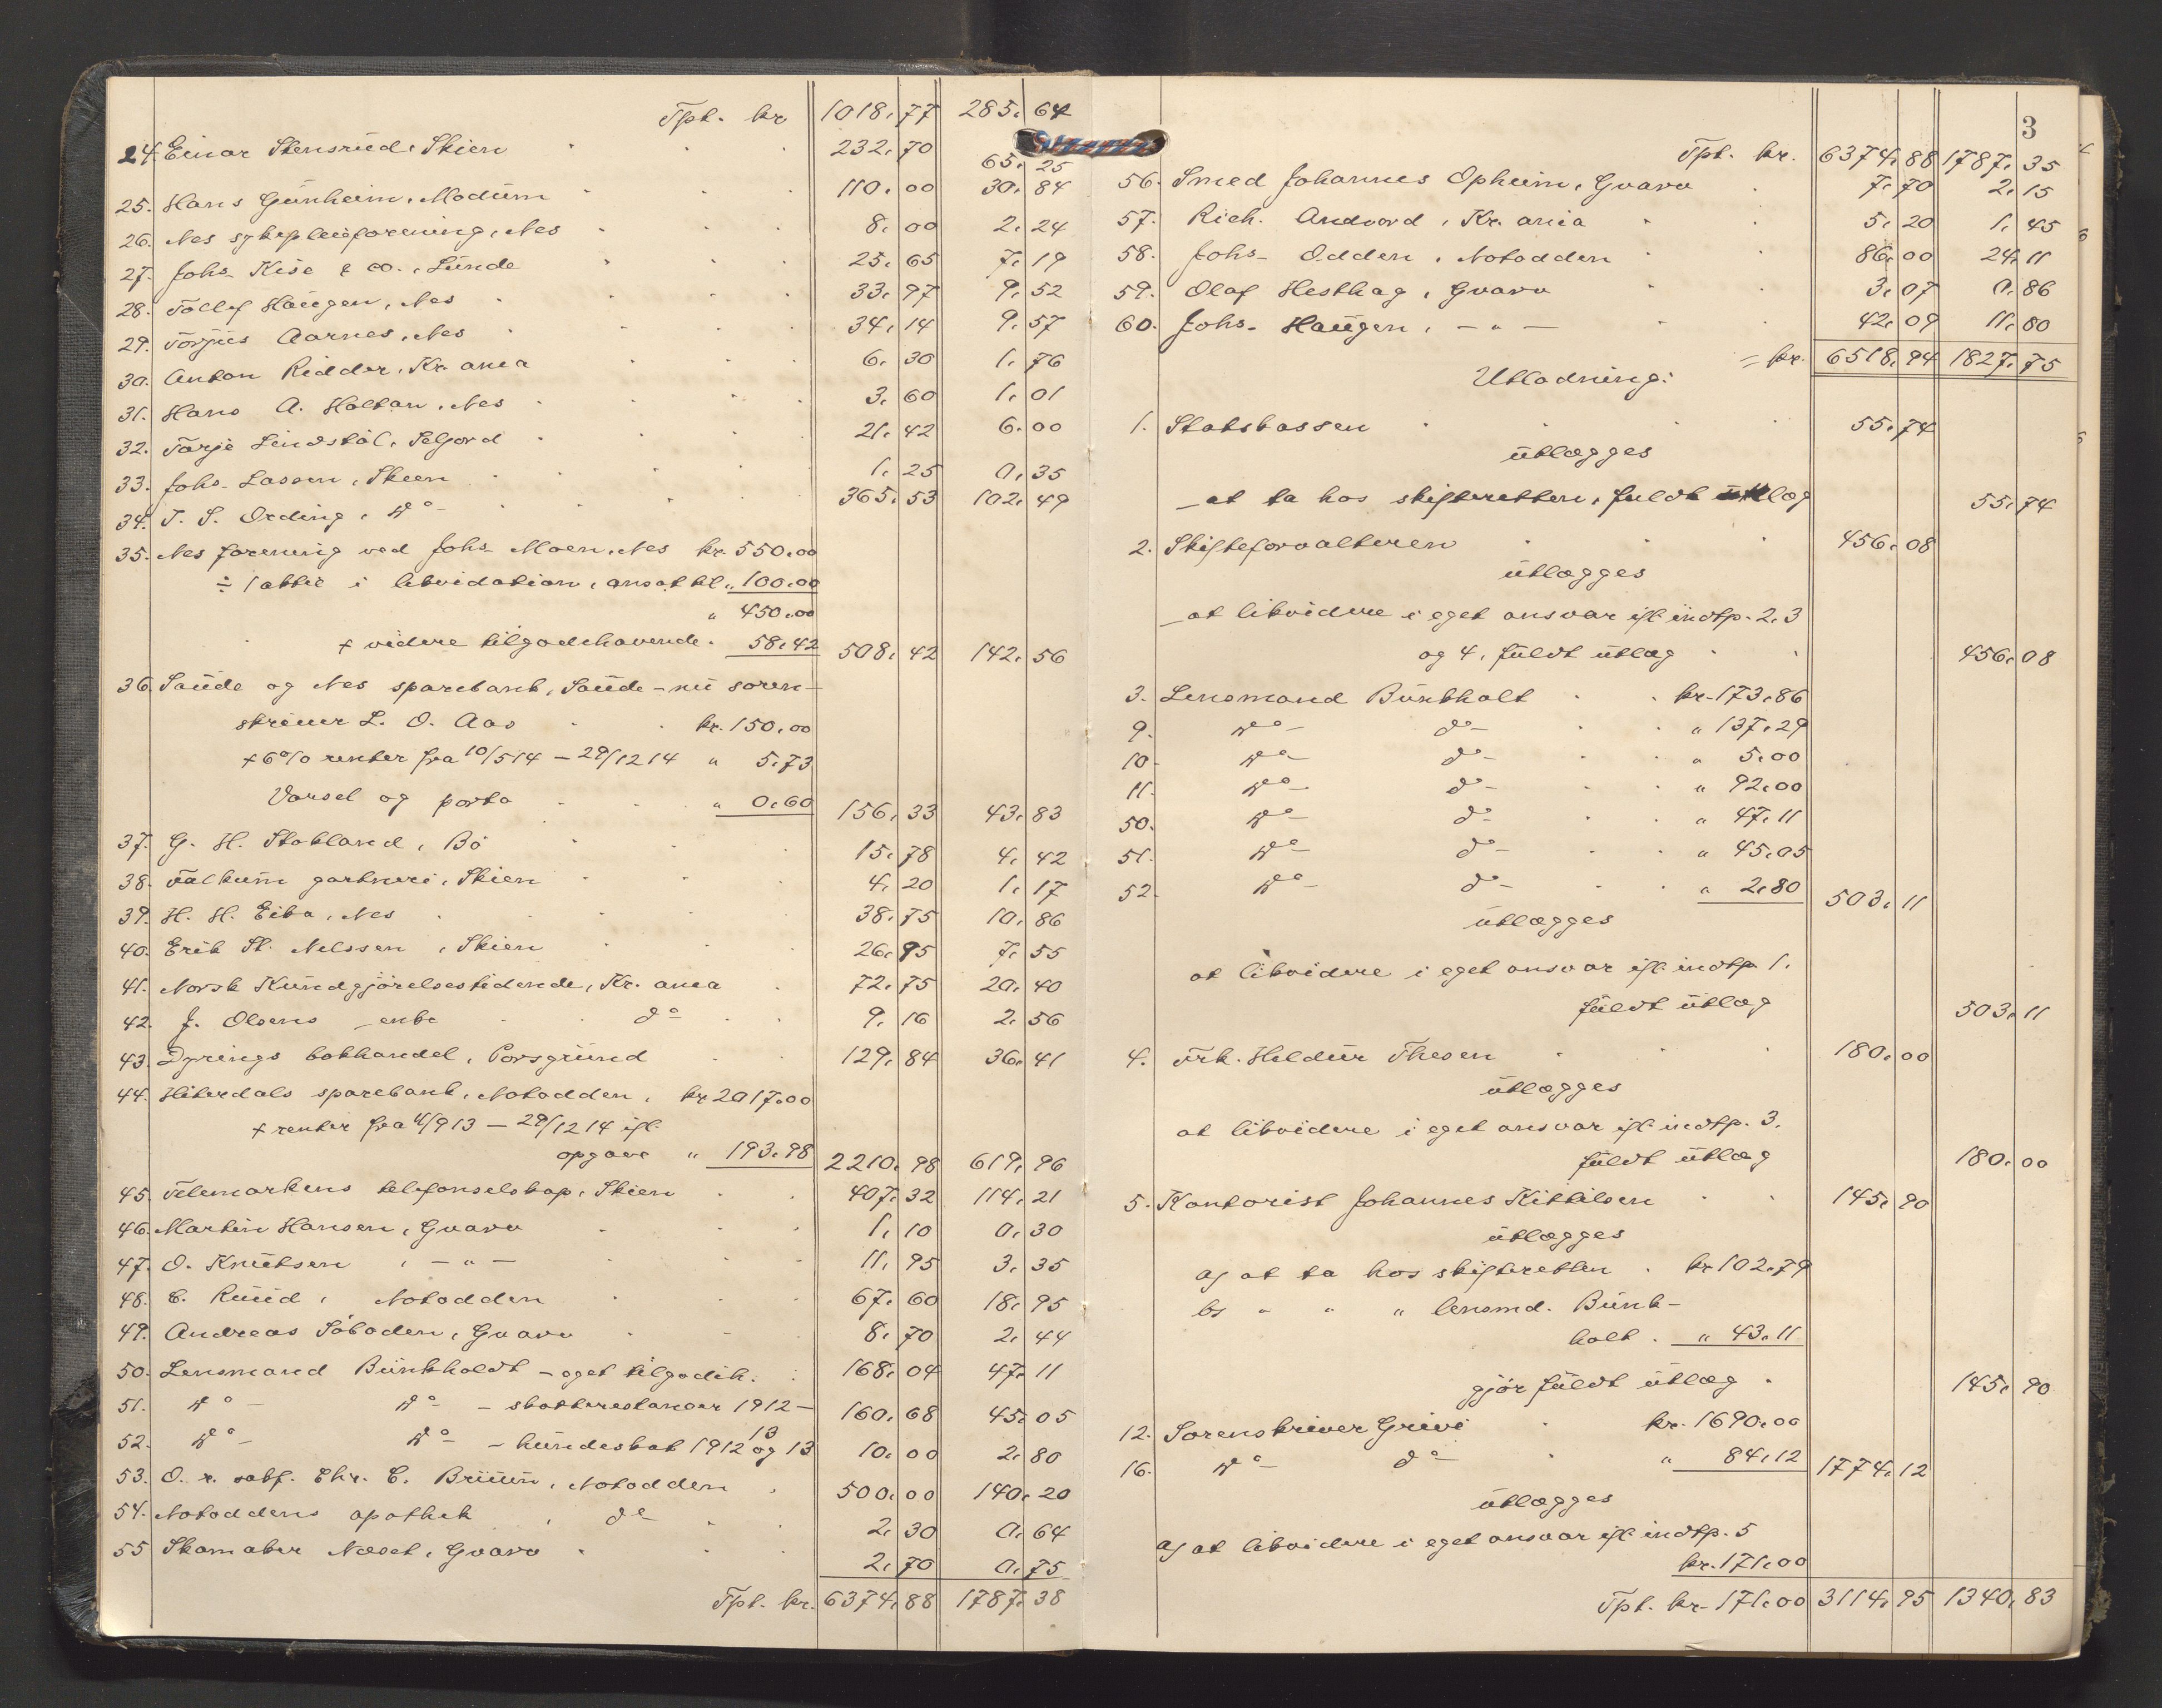 Tpt. kr 1018,77 285,64
24. Einar Stensrud, Skien 232,70 65,25
25. Hans Gunheim, Modum 110,00 30,84
26. Nes sykepleieforening, Nes 8,00 2,24
27. Johs. Kise & co., Lunde 25,65 7,19
28. Tollef Haugen, Nes 33,97 9,52
29. Torjus Aarnes, Nes 34,14 9,57
30. Anton Ridder, Kr.ania 6,30 1,76
31. Hans A. Holtan, Nes 3,60 1,01
32. Torje Lindstøl, Seljord 21,42 6,00
33. Johs. Lassen, Skien 1,25 0,35
34. T. S. Ording, do 365,53 102,49
35. Nes forening ved Johs. Moen, Nes kr. 550,00
÷ 1 aktie i likvidation, ansat til „ 100,00
„ 450,00
+ videre tilgodehavende. 58,42 508,42 142,56
36. Saude og Nes sparebank, Saude - nu soren-
skriver L. O. Aas kr. 150,00
+ 6% renter fra 10/5 14 - 29/12 14 „ 5,73
Varsel og porto „ 0,60 156,33 43,83
37. G. H. Stokland, Bø 15,78 4,42
38. Valkum gartneri, Skien 4,20 1,17
39. H. H. Eika, Nes 38,75 10,86
40. Erik St. Nilssen, Skien 26,95 7,55
41. Norsk Kundgjørelsestidende, Kr.ania 72,75 20,40
42. J. Olsens enke do 9,16 2,56
43. Dyrings bokhandel, Porsgrund 129,84 36,41
44. Hiterdals sparebank, Notodden, kr 2017,00
+ renter fra 4/9 13 - 29/12 14 ifl.
opgave „ 193,98 2210,98 619,96
45. Telemarkens telefonselskap, Skien 407,32 114,21
46. Martin Hansen, Gvarv 1,10 0,30
47. O. Knutsen, - „ - 11,95 3,35
48. E. Ruud, Notodden 67,60 18,95
49. Andreas Saboden, Gvarv 8,70 2,44
50. Lensmand Bunkholdt - eget tilgodeh. 168,04 47,11
51. do do - skatterestanser 1912- 160,68 45,05
13
52. do do - hundeskat 1912 og 13 10,00 2,80
53. O. r. sakf. Chr. C. Bruun, Notodden 500,00 140,20
54. Notoddens apothek, do 2,30 0,64
55 Skomaker Næset, Gvarv 2,70 0,75
Tpt. kr. 6374,88 1787,38
3
Tpt. kr. 6374,88 1787,35
56. Smed Johannes Opheim, Gvarv 7,70 2,15
57. Rich. Andvord, Kr.ania 5,20 1,45
58. Johs. Odden, Notodden 86,00 24,11
59. Olaf Hesthag, Gvarv 3,07 0,86
60. Johs. Haugen, - „ - 42,09 11,80
= kr. 6518,94 1827,75
Utlodning:
1. Statskassen 55,74
utlægges
- at ta hos skifteretten, fuldt utlæg 55,74
2. Skifteforvalteren 456,08
utlægges
- at likvidere i eget ansvar ifl. indtp. 2, 3
og 4, fuldt utlæg 456,08
3. Lensmand Bunkholt kr. 173,86
9. do do „ 137,29
10. do do „ 5,00
11. do do „ 92,00
50. do do „ 47,11
51. do do „ 45,05
52. do do „ 2,80 503,11
utlægges
at likvidere i eget ansvar ifl. indtp. 1.
fuldt utlæg 503,11
4. Frk. Heldur Thesen 180,00
utlægges
at likvidere i eget ansvar ifl. indtp. 3.
fuldt utlæg 180,00
5. Kontorist Johannes Kittilsen 145,90
utlægges
a) at ta hos skifteretten kr 102,79
b) „ „ „ lensmd. Bunk-
holt „ 43,11
gjør fuldt utlæg 145,90
12. Sorenskriver Grivi kr. 1690,00
16. do do „ 84,12 1774,12
utlægges
a) at likvidere i eget ansvar ifl. indtp. 5
kr. 171,00
Tpt. kr. 171,00 3114,95 1340,83